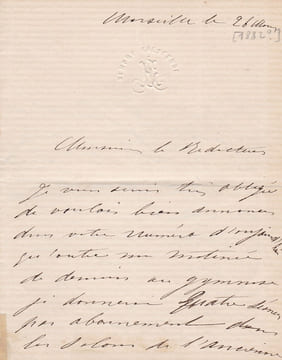 Marseille le 26 Mars
[1882?]
Monsieur le Redacteur
Je vous serais très obligé
de vouloir bien annoncer
dans votre Numéro d'aujourd'hui
qu'outre ma matinée
de demain au gymnase
je donnerai quatre séances
par abonnement dans
les Salons de l'Ancienne